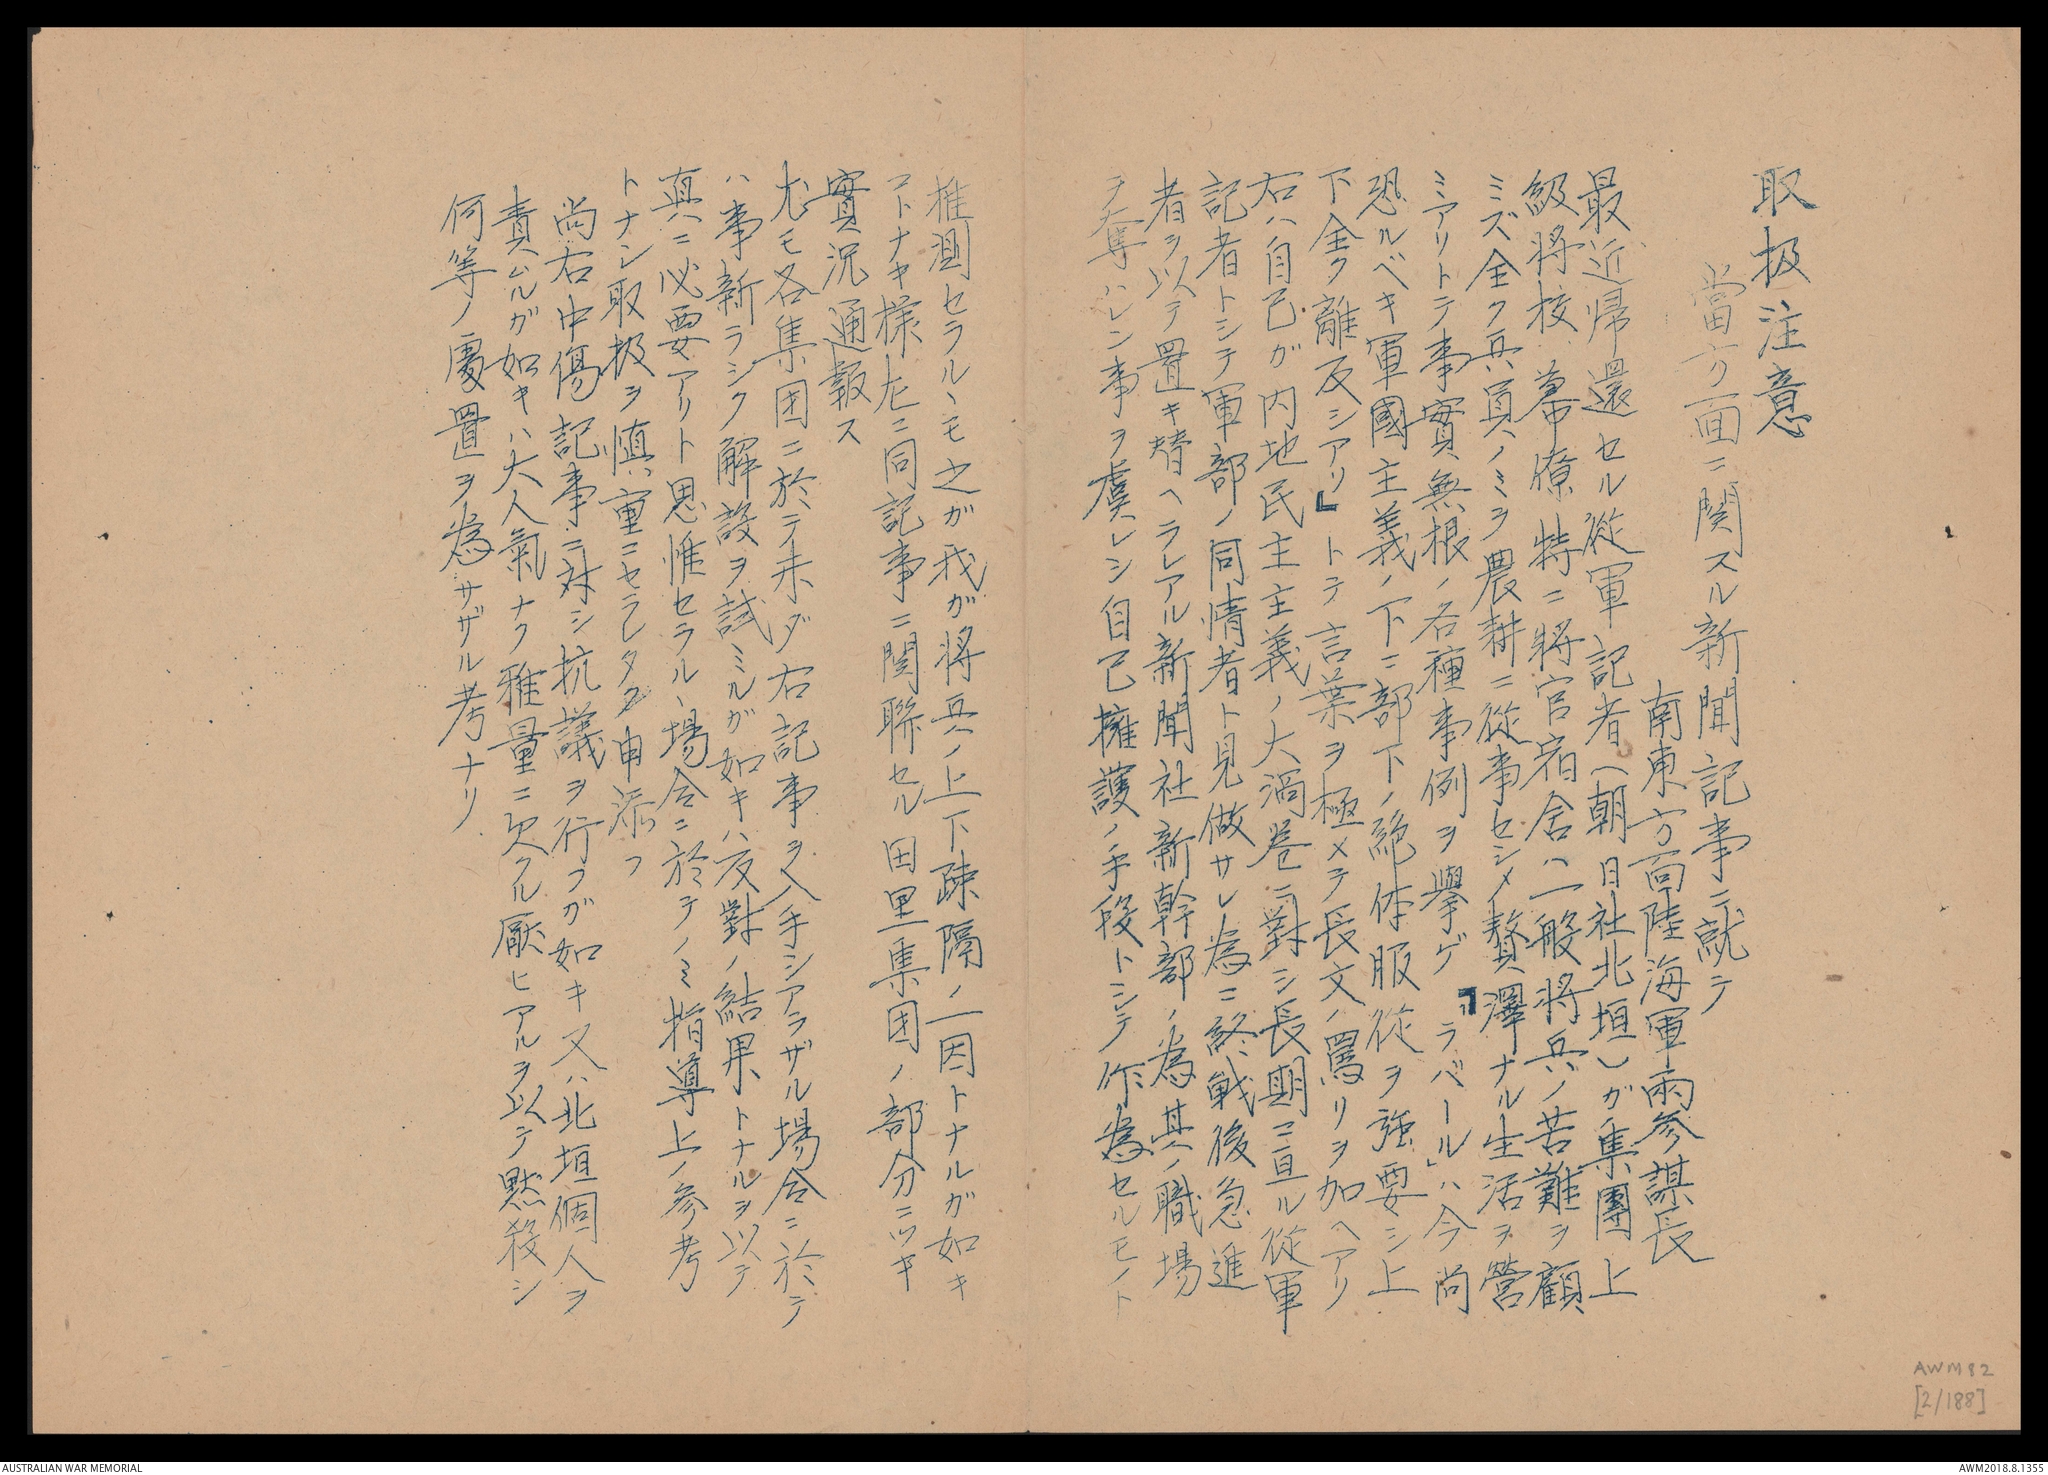 取扱注意
當方面ニ関スル新聞記事ニ就テ
南東方面陸海軍両参謀長
最近帰還セル従軍記者(朝日社北垣)ガ集團上
級将校、幕僚特ニ将官宿舎ハ一般将兵ノ苦難ヲ顧
ミズ全ク兵員ノミヲ農耕ニ従事セシメ贅澤ナル生活ヲ營
ミアリトテ事實無根ノ各種事例ヲ擧ゲ『ラバール』ハ今尚
恐ルベキ軍國主義ノ下ニ部下ノ絶体服従ヲ強要シ上
下全ク離反シアリ』トテ言葉ヲ極メテ長文ノ罵リヲ加ヘアリ
右ハ自己ガ内地民主主義ノ大渦巻ニ對シ長期ニ亘ル従軍
記者トシテ軍部ノ同情者ト見做サレ為ニ終戦後急進
者ヲ以テ置キ替ヘラレアル新聞社新幹部ノ為其ノ職場
ヲ奪ハレン事ヲ虞レシ自己擁護ノ手段トシテ作為セルモノト
推測セラルヽモ之ガ我ガ将兵ノ上下疎隔ノ一因トナルガ如キ
コトナキ様左ニ同記事ニ関聯セル田里集団ノ部分ニツキ
實況通報ス
尤モ各集団ニ於テ未ダ右記事ヲ入手シアラザル場合ニ於テ
ハ事新ラシク解説ヲ試ミルガ如キハ反對ノ結果トナルヲ以テ
真ニ必要アリト思惟セラルヽ場合ニ於テノミ指導上ノ参考
トナシ取扱ヲ慎重ニセラレタク申添フ
尚右中傷記事ニ対シ抗議ヲ行フガ如キ又ハ北垣個人ヲ
責ムルガ如キハ大人氣ナク雅量ニ欠クル厭ヒアルヲ以テ黙殺シ
何等ノ處置ヲ為サザル考ナリ
AWM82
[2/188]
AUSTRALIAN WAR MEMORIAL
AWM2018.8.1355